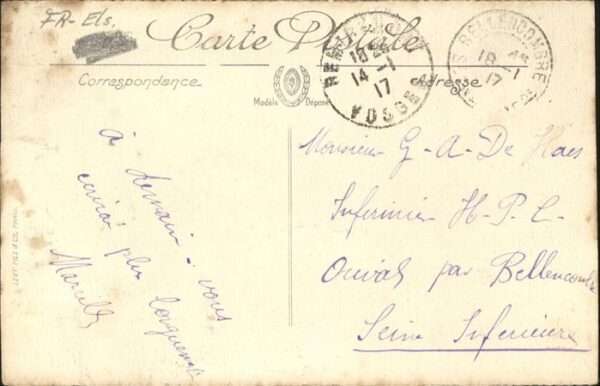 FR-Els.
Carte Postale
Correspondance
Adresse
Modèle Déposé
REMIREMONT
18
14 -1
17
VOSGES
BELLENCOMBRE
18 -1
17
à demain à vous
écrirai plus longuement
Marcelle
Monsieur G-A-De Haes
Infirmier H-P-C-
Orival par Bellencombre
Seine Inférieure
LEVY FILS & CIE PARIS